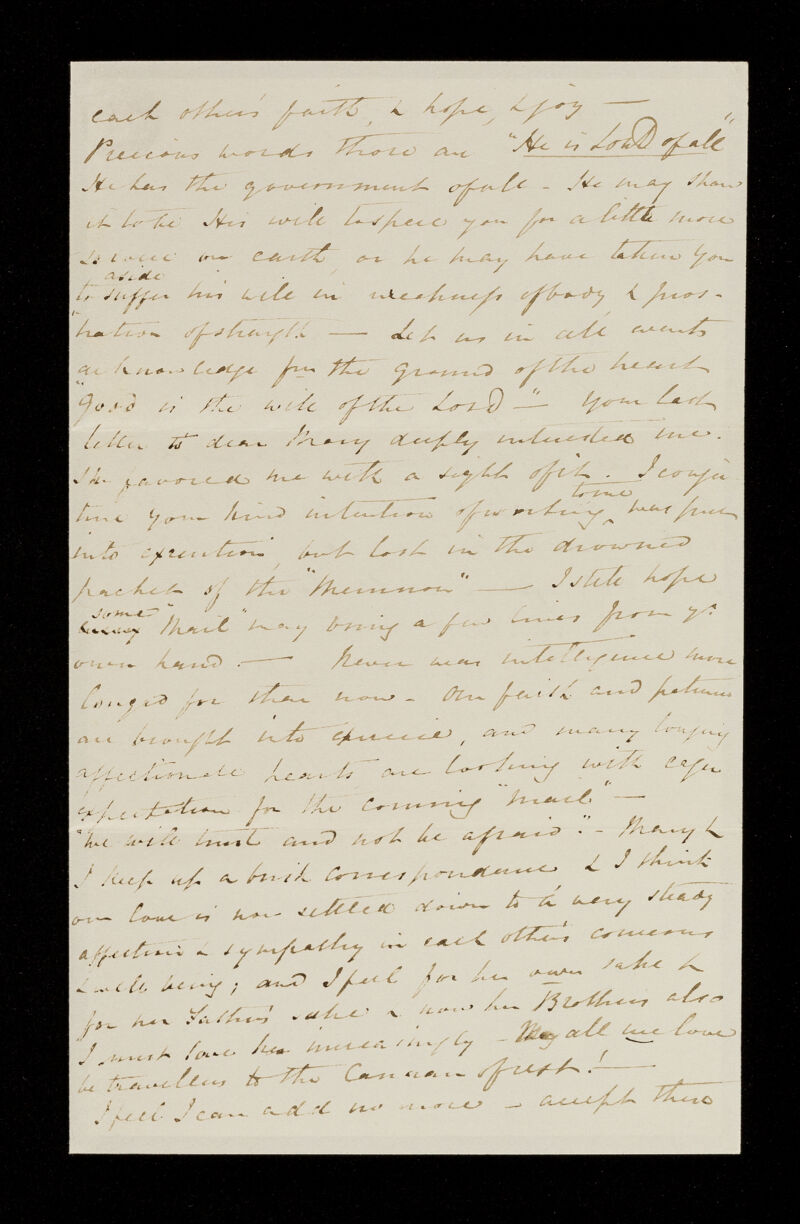 each other's faith, & hope, & joy —
Precious words those are "He is LorD of all"
He has the government of all - He may show
it to be His will to spare you for a little more
service on earth, or he may have taken you
aside
to suffer his will in weakness of body & pros-
"tration of strength — Let us in all events
acknowledge fm the ground of the heart
"Good is the will of the LorD" — Your last
letter to dear Mary deeply interested me.
She favored me with a sight of it. I conjec
to me
ture your kind intention of writing ^ was put
into execution, but lost in the drowned
packet of the "Memnon" — I still hope
some
"Mail" may bring a few lines from yr
own hand. — Never was intelligence more
longed for than now - Our faith and patience
are brought into exercise, and many longing
affectionate hearts are looking with eager
expectation for the coming "mail" —
"We will trust and not be afraid". - Mary &
I keep up a brisk correspondence & I think
our love is now settled down to a very steady
affection & sympathy in each other's concerns
& well being; and I feel for her own sake &
for her Father's sake & now her Brothers also
I must love her increasingly - May all we love
be travellers to the Canaan of rest! —
I feel I can add no more - accept these